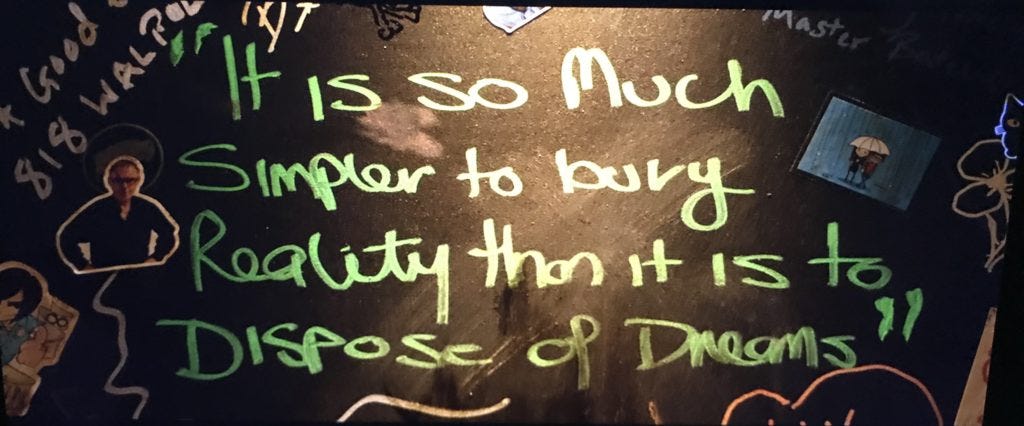 Good
818 WALPOL
TXJT
Master
"It is so Much
Simpler to bury
Reality than it is to
Dispose of Dreams"